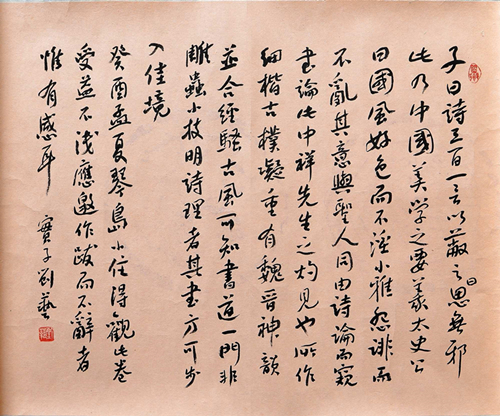 子曰詩三百一言以蔽之曰思無邪
此乃中國美學之要義太史公
曰國風好色而不淫小雅怨誹而
不亂其意與聖人同由詩論而窺
書論此中祥先生之灼見也所作
細楷古樸凝重有魏晉神韻
並合經騷古風可知書道一門非
雕蟲小技明詩理者其書方可步
入佳境
癸酉孟夏琴島小住得觀此卷
受益不淺應邀作跋而不辭者
惟有感耳 寶子劉藝